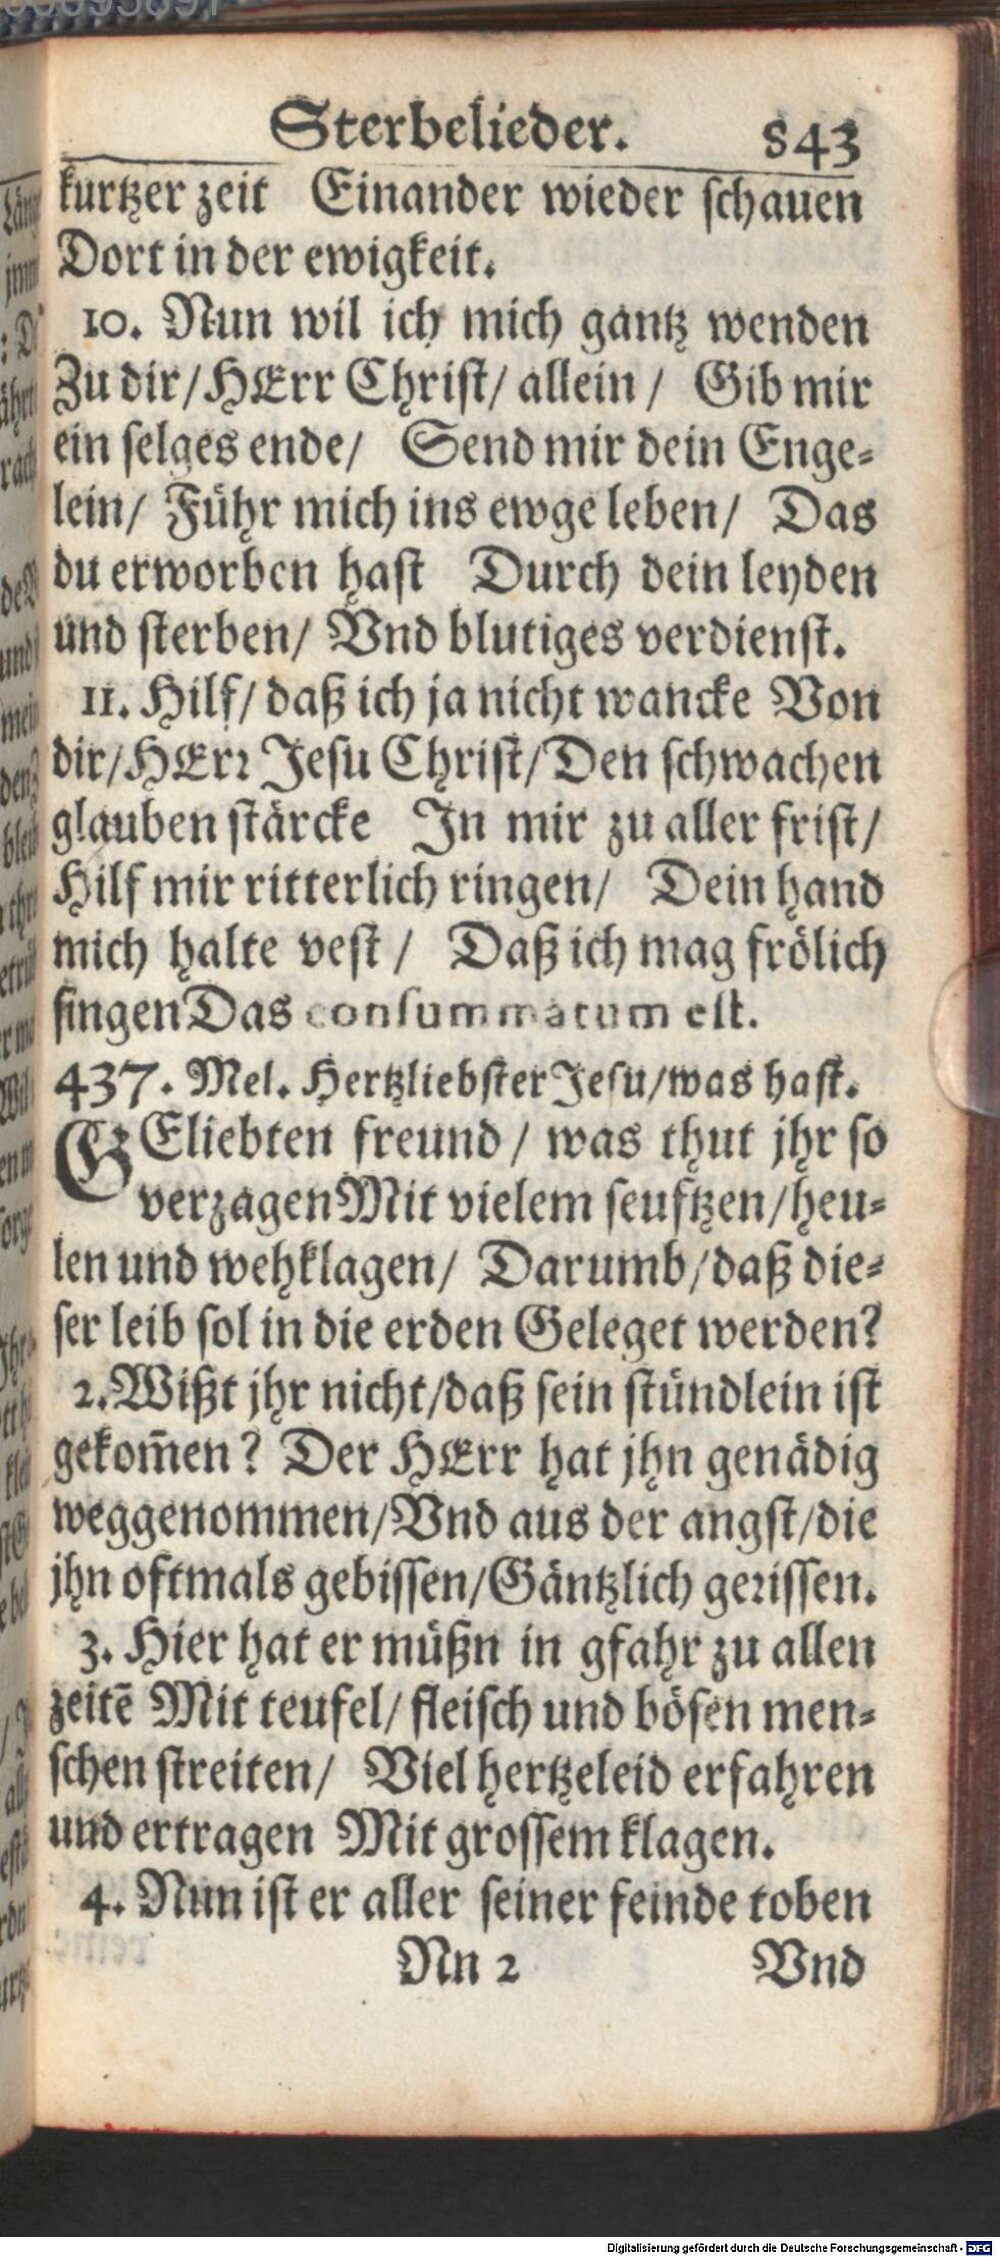 Sterbelieder. 843
kurtzer zeit Einander wieder schauen
Dort in der ewigkeit.
10. Nun wil ich mich gantz wenden
Zu dir/HErr Christ/ allein / Gib mir
ein selges ende/ Send mir dein Enge-
lein/ Führ mich ins ewge leben/ Das
du erworben hast Durch dein leyden
und sterben/ Vnd blutiges verdienst.
11. Hilf/ daß ich ja nicht wancke Von
dir/HErr Jesu Christ/Den schwachen
glauben stärcke In mir zu aller frist/
Hilf mir ritterlich ringen/ Dein hand
mich halte vest / Daß ich mag frölich
singen Das consummatum est.
437. Mel. Hertzliebster Jesu/was hast.
GEliebten freund / was thut jhr so
verzagen Mit vielem seuftzen/heu-
len und wehklagen/ Darumb/daß die-
ser leib sol in die erden Geleget werden?
2. Wißt jhr nicht/daß sein stündlein ist
gekom̃en? Der HErr hat jhn genädig
weggenommen/Vnd aus der angst/die
jhn oftmals gebissen/Gäntzlich gerissen.
3. Hier hat er müßn in gfahr zu allen
zeitē Mit teufel/ fleisch und bösen men-
schen streiten/ Viel hertzeleid erfahren
und ertragen Mit grossem klagen.
4. Nun ist er aller seiner feinde toben
Nn 2 Vnd
Digitalisierung gefördert durch die Deutsche Forschungsgemeinschaft - DFG